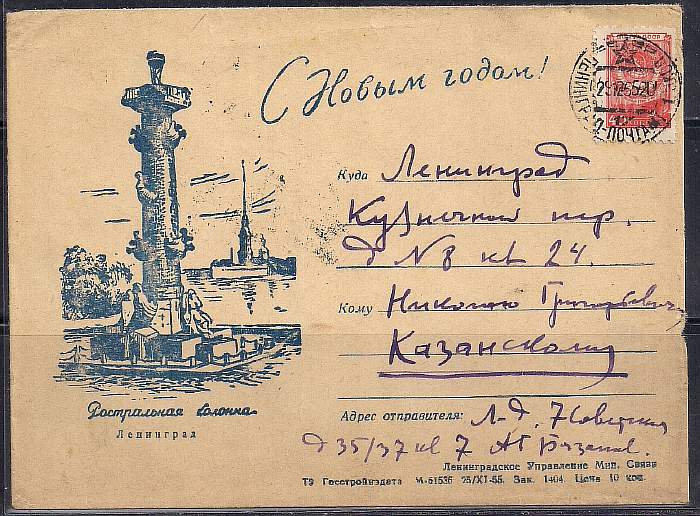 С Новым годом!
29 12 55 20
Куда Ленинград
Кузнечный пер.
д N 8 кв 24.
Кому Николаю Григорьевичу
Казанскому
Ростральная колонна
Ленинград
Адрес отправителя: Л-д, 7 Советская
д 35/37 кв 7
Ленинградское Управление Мин. Связи
ТЭ Госстройиздата М-51536 25/XI-55. Зак. 1404. Цена 10 коп.